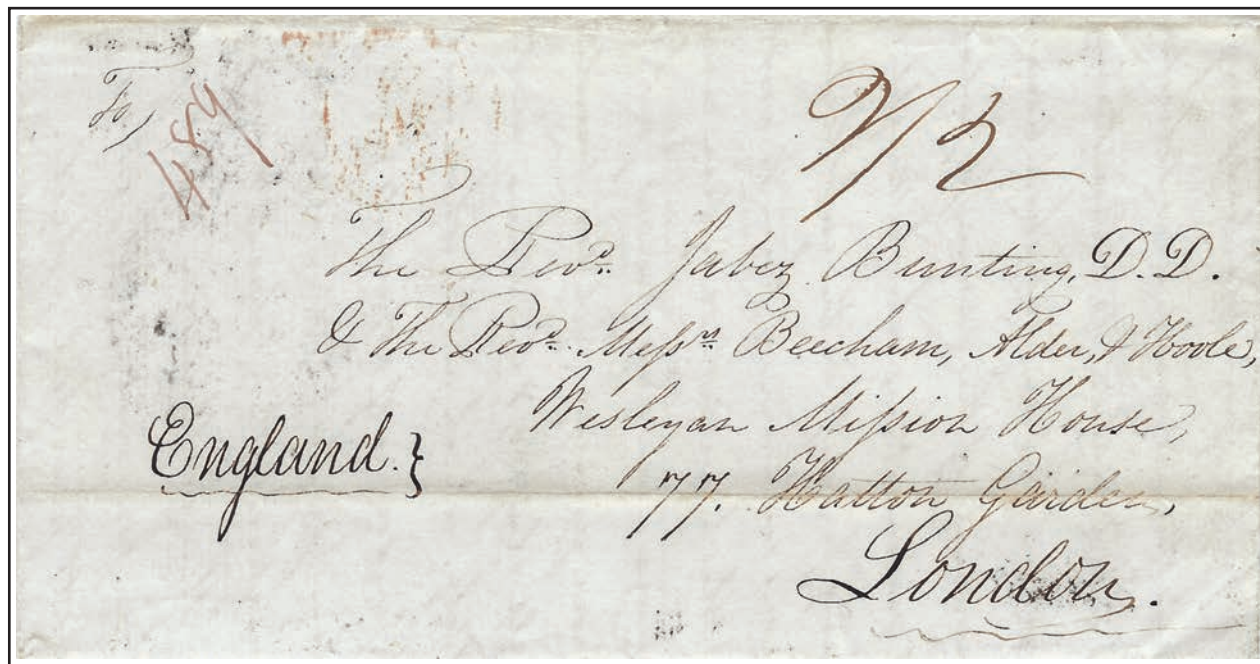 To,
489
2/2
The Revd. Jabez Bunting, D.D.
& The Revd. Messrs. Beecham, Alder, & Hoole,
Wesleyan Mission House,
England. }
77. Hatton Garden,
London.